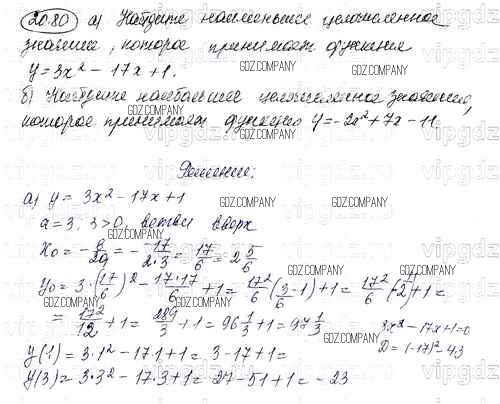 20.80 а) Найдите наименьшее целочисленное
значение, которое принимает функция
y = 3x² - 17x + 1.
б) Найдите наибольшее целочисленное значение,
которое принимает функция y = -2x² + 7x - 11
Решение:
а) y = 3x² - 17x + 1
a = 3, 3 > 0, ветви вверх
x₀ = - b/2a = - -17/2·3 = 17/6 = 2 5/6
y₀ = 3·(17/6)² - 17·17/6 + 1 = 17²/6 (3/6 - 1) + 1 = 17²/6 (- 1/2) + 1 =
= 17²/12 + 1 = 289/3 + 1 = 96 1/3 + 1 = 97 1/3
3x² - 17x + 1 = 0
D = (-17)² - 4·3
y(1) = 3·1² - 17·1 + 1 = 3 - 17 + 1 =
y(3) = 3·3² - 17·3 + 1 = 27 - 51 + 1 = - 23
GDZ.COMPANY
vipgdz